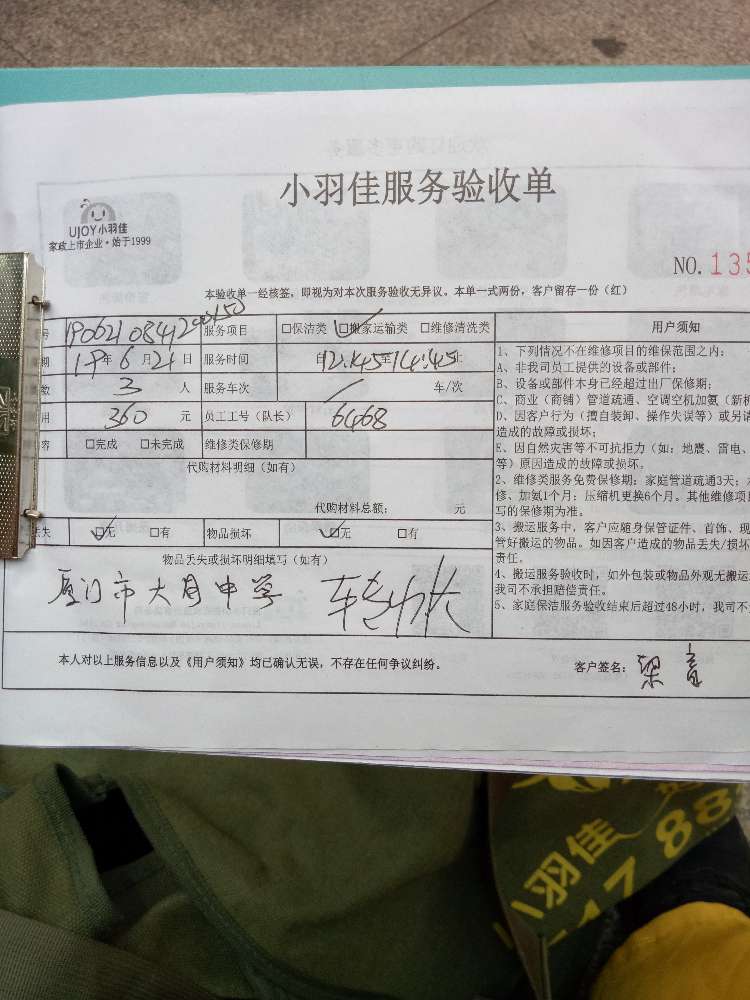 小羽佳服务验收单
UJOY小羽佳
家政上市企业·始于1999
NO.135
本验收单一经核签，即视为对本次服务验收无异议。本单一式两份，客户留存一份（红）
号 服务项目 □保洁类 □搬家运输类 □维修清洗类 用户须知
期 19年6月21日 服务时间 自12:45至14:45止
数 3 人 服务车次 车/次
用 360 元 员工工号（队长） 6468
容 □完成 □未完成 维修类保修期
代购材料明细（如有）
代购材料总额： 元
丢失 □无 □有 物品损坏 □无 □有
物品丢失或损坏明细填写（如有）
厦门市大同中学
1、下列情况不在维修项目的维保范围之内：
A、非我司员工提供的设备或部件；
B、设备或部件本身已经超过出厂保修期；
C、商业（商铺）管道疏通、空调空机加氨（新机
D、因客户行为（擅自装卸、操作失误等）或另请
造成的故障或损坏；
E、因自然灾害等不可抗拒力（如：地震、雷电、
等）原因造成的故障或损坏。
2、维修类服务免费保修期：家庭管道疏通3天；
修、加氨1个月；压缩机更换6个月。其他维修项
写的保修期为准。
3、搬运服务中，客户应随身保管证件、首饰、现
管好搬运的物品。如因客户造成的物品丢失/损坏
责任。
4、搬运服务验收时，如外包装或物品外观无搬运
我司不承担赔偿责任。
5、家庭保洁服务验收结束后超过48小时，我司不
本人对以上服务信息以及《用户须知》均已确认无误，不存在任何争议纠纷。 客户签名：
小羽佳